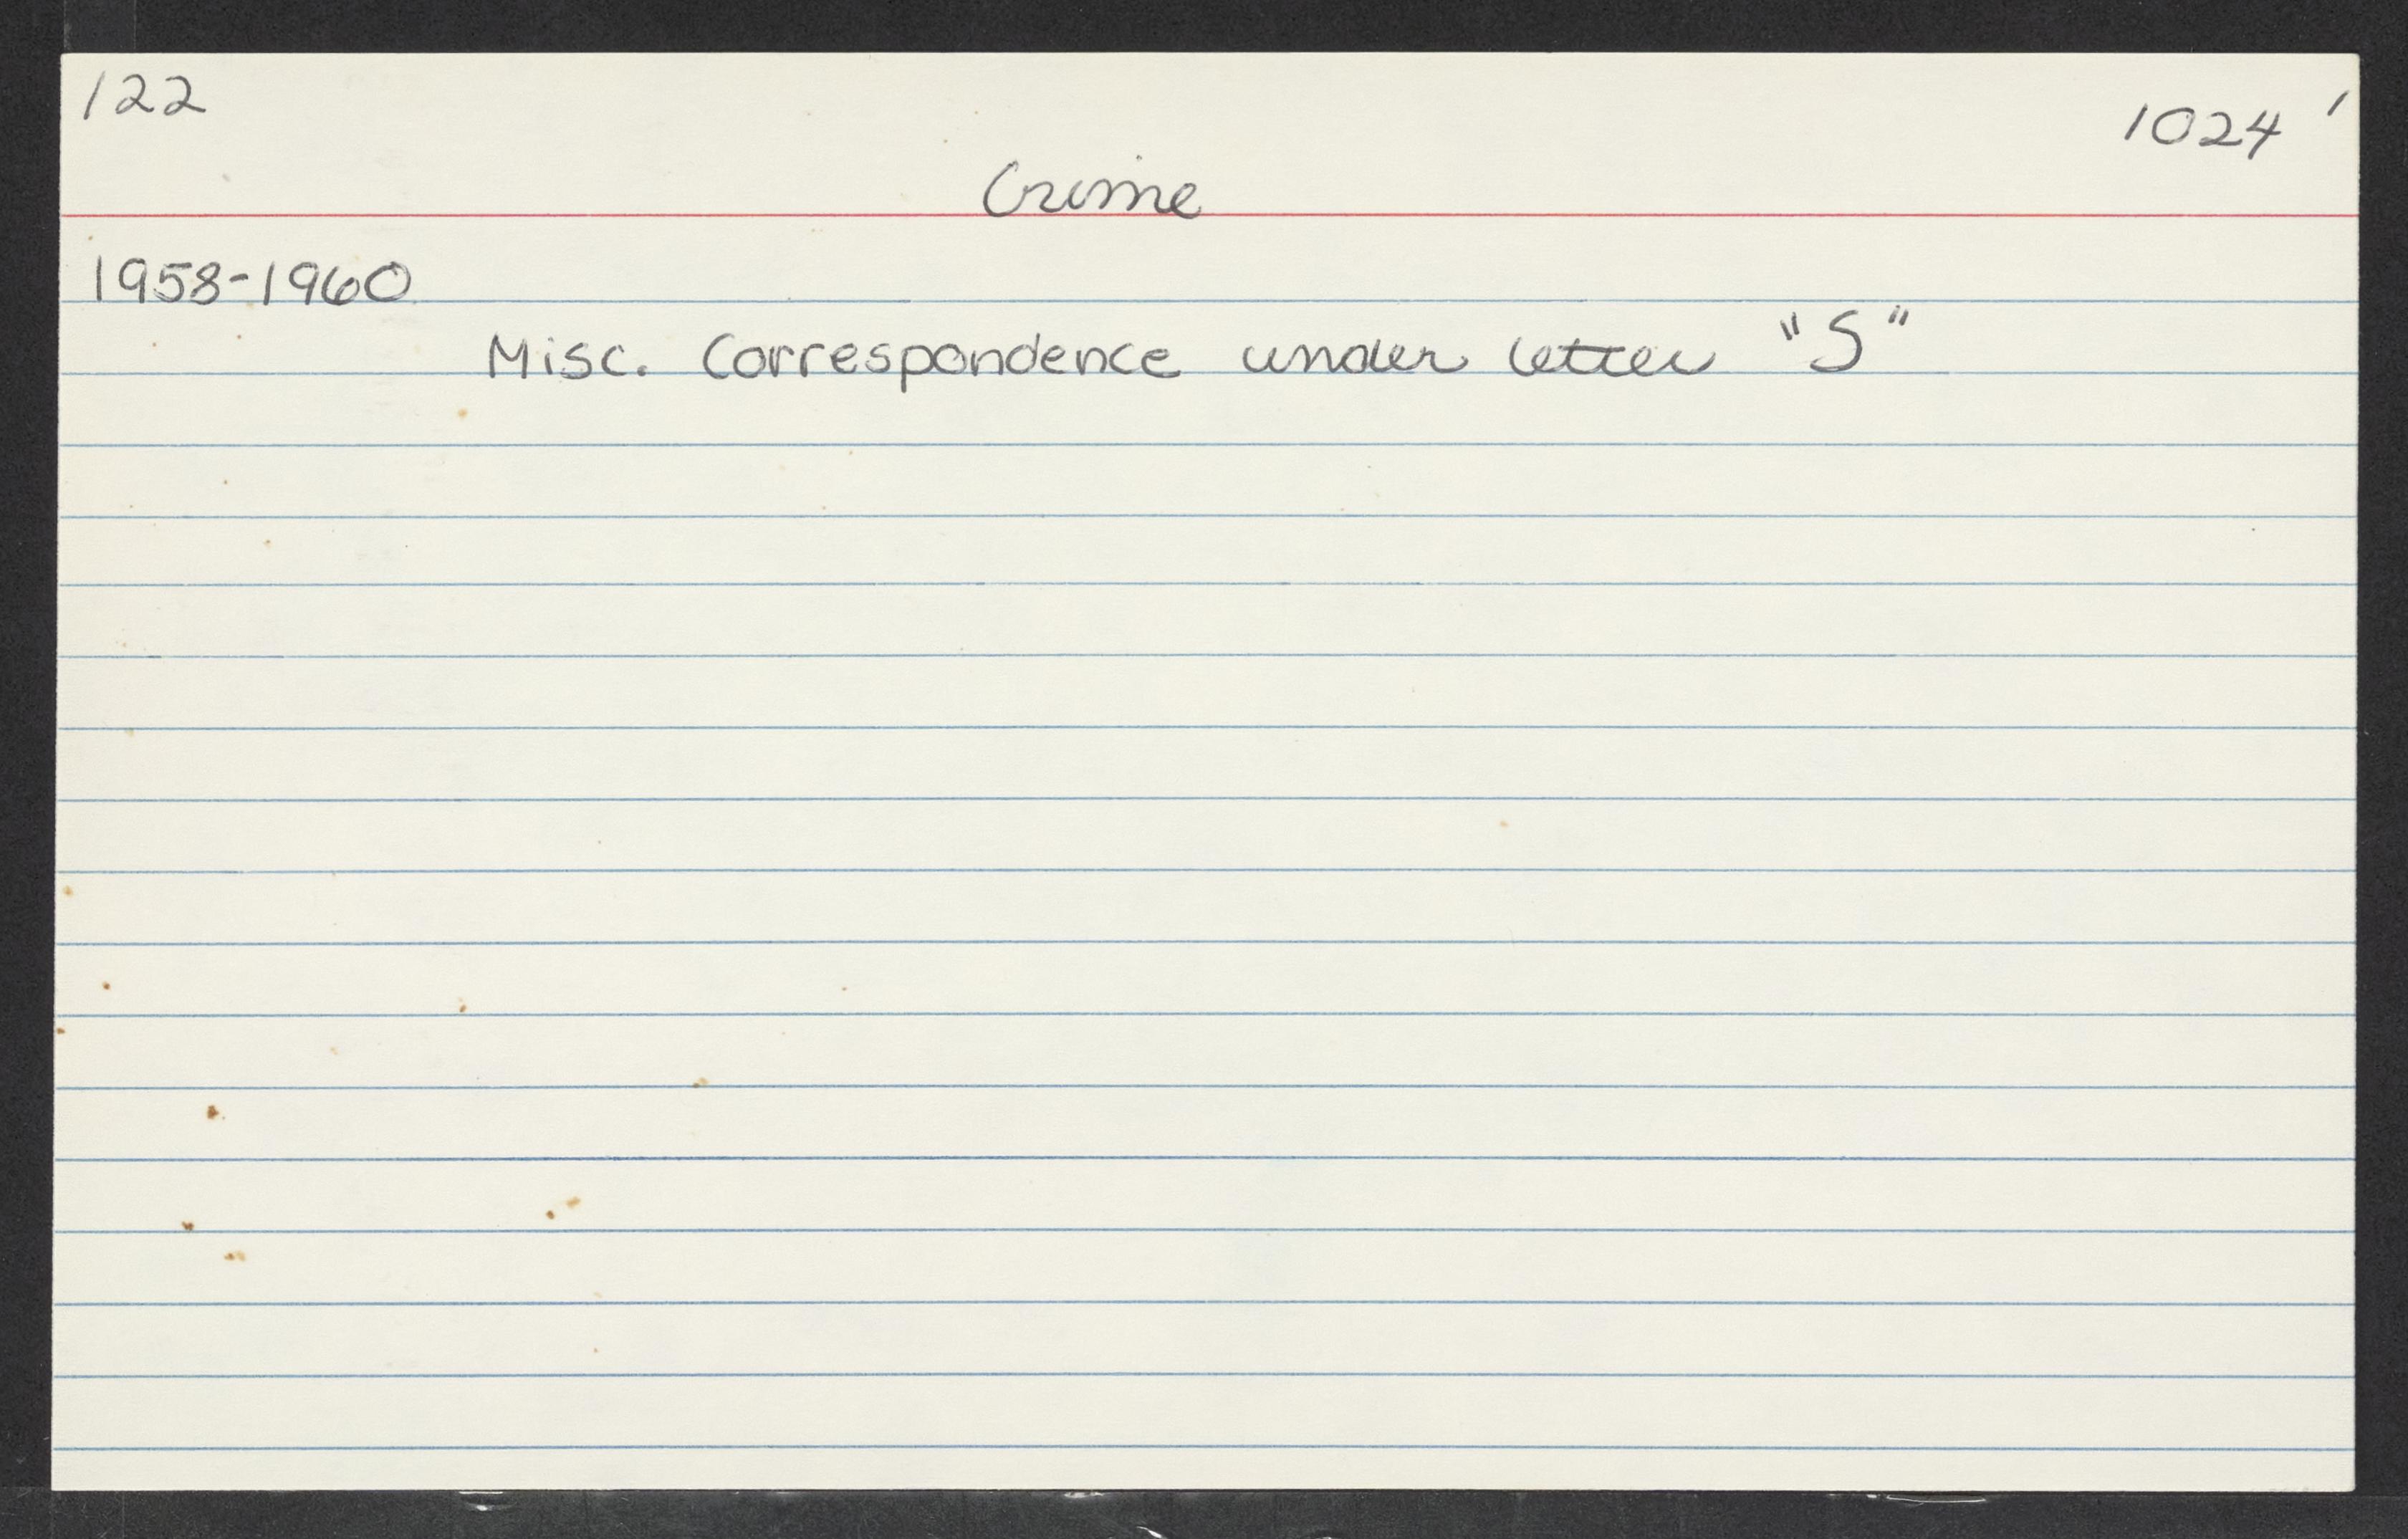 122
1024 '
Crime
1958-1960
Misc. Correspondence under letter "S"